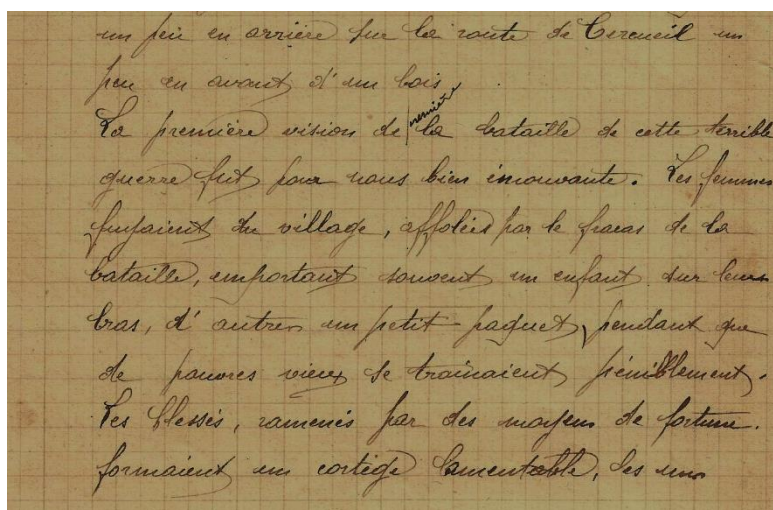 un peu en arrière sur la route de Cercueil un
peu en avant d'un bois
La première vision de première la bataille de cette terrible
guerre fut pour nous bien émouvante. Les femmes
fuyaient du village, affolées par le fracas de la
bataille, emportant souvent un enfant sur leurs
bras, d'autres un petit paquet, pendant que
de pauvres vieux se traînaient péniblement.
Les blessés, ramenés par des moyens de fortune.
formaient un cortège lamentable, les uns